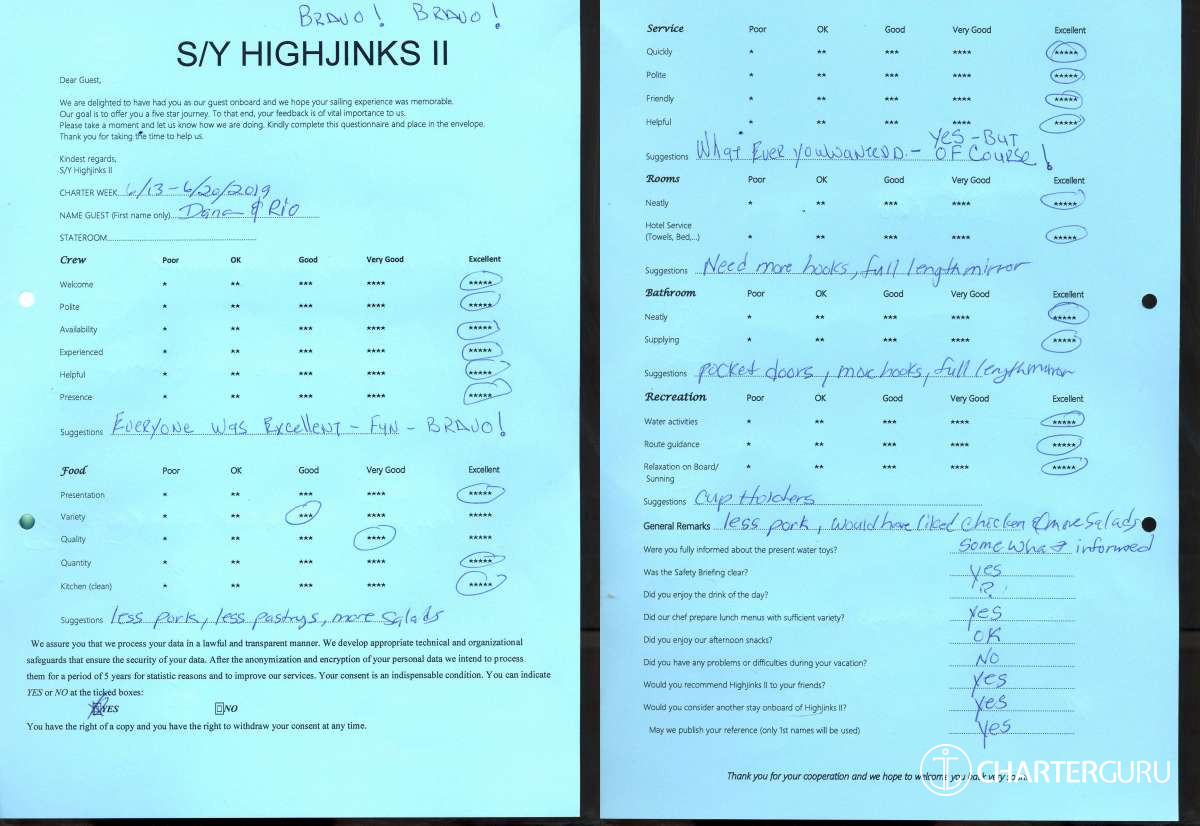 BRAVO! BRAVO!
S/Y HIGHJINKS II
Dear Guest,
We are delighted to have had you as our guest onboard and we hope your sailing experience was memorable.
Our goal is to offer you a five star journey. To that end, your feedback is of vital importance to us.
Please take a moment and let us know how we are doing. Kindly complete this questionnaire and place in the envelope.
Thank you for taking the time to help us.
Kindest regards,
S/Y Highjinks II
CHARTER WEEK 6/13-6/20/2019
NAME GUEST (First name only) Dana & Rio
STATEROOM
Crew Poor OK Good Very Good Excellent
Welcome * ** *** **** *****
Polite * ** *** **** *****
Availability * ** *** **** *****
Experienced * ** *** **** *****
Helpful * ** *** **** *****
Presence * ** *** **** *****
Suggestions EVERYONE WAS EXCELLENT - FUN - BRAVO!
Food Poor OK Good Very Good Excellent
Presentation * ** *** **** *****
Variety * ** *** **** *****
Quality * ** *** **** *****
Quantity * ** *** **** *****
Kitchen (clean) * ** *** **** *****
Suggestions less pork, less pastrys, more salads
We assure you that we process your data in a lawful and transparent manner. We develop appropriate technical and organizational
safeguards that ensure the security of your data. After the anonymization and encryption of your personal data we intend to process
them for a period of 5 years for statistic reasons and to improve our services. Your consent is an indispensable condition. You can indicate
YES or NO at the ticked boxes:
YES NO
You have the right of a copy and you have the right to withdraw your consent at any time.
Service Poor OK Good Very Good Excellent
Quickly * ** *** **** *****
Polite * ** *** **** *****
Friendly * ** *** **** *****
Helpful * ** *** **** *****
YES - BUT
Suggestions WHAT EVER YOU WANTED - OF COURSE!
Rooms Poor OK Good Very Good Excellent
Neatly * ** *** **** *****
Hotel Service
(Towels, Bed,...) * ** *** **** *****
Suggestions Need more hooks, full length mirror
Bathroom Poor OK Good Very Good Excellent
Neatly * ** *** **** *****
Supplying * ** *** **** *****
Suggestions pocket doors, more hooks, full length mirror
Recreation Poor OK Good Very Good Excellent
Water activities * ** *** **** *****
Route guidance * ** *** **** *****
Relaxation on Board/
Sunning * ** *** **** *****
Suggestions Cup Holders
General Remarks less pork, would have liked chicken & more salads
Were you fully informed about the present water toys? Somewhat informed
Was the Safety Briefing clear? yes
Did you enjoy the drink of the day? ?
Did our chef prepare lunch menus with sufficient variety? yes
Did you enjoy our afternoon snacks? OK
Did you have any problems or difficulties during your vacation? No
Would you recommend Highjinks II to your friends? yes
Would you consider another stay onboard of Highjinks II? yes
May we publish your reference (only 1st names will be used) yes
Thank you for your cooperation and we hope to welcome you back very
CHARTERGURU